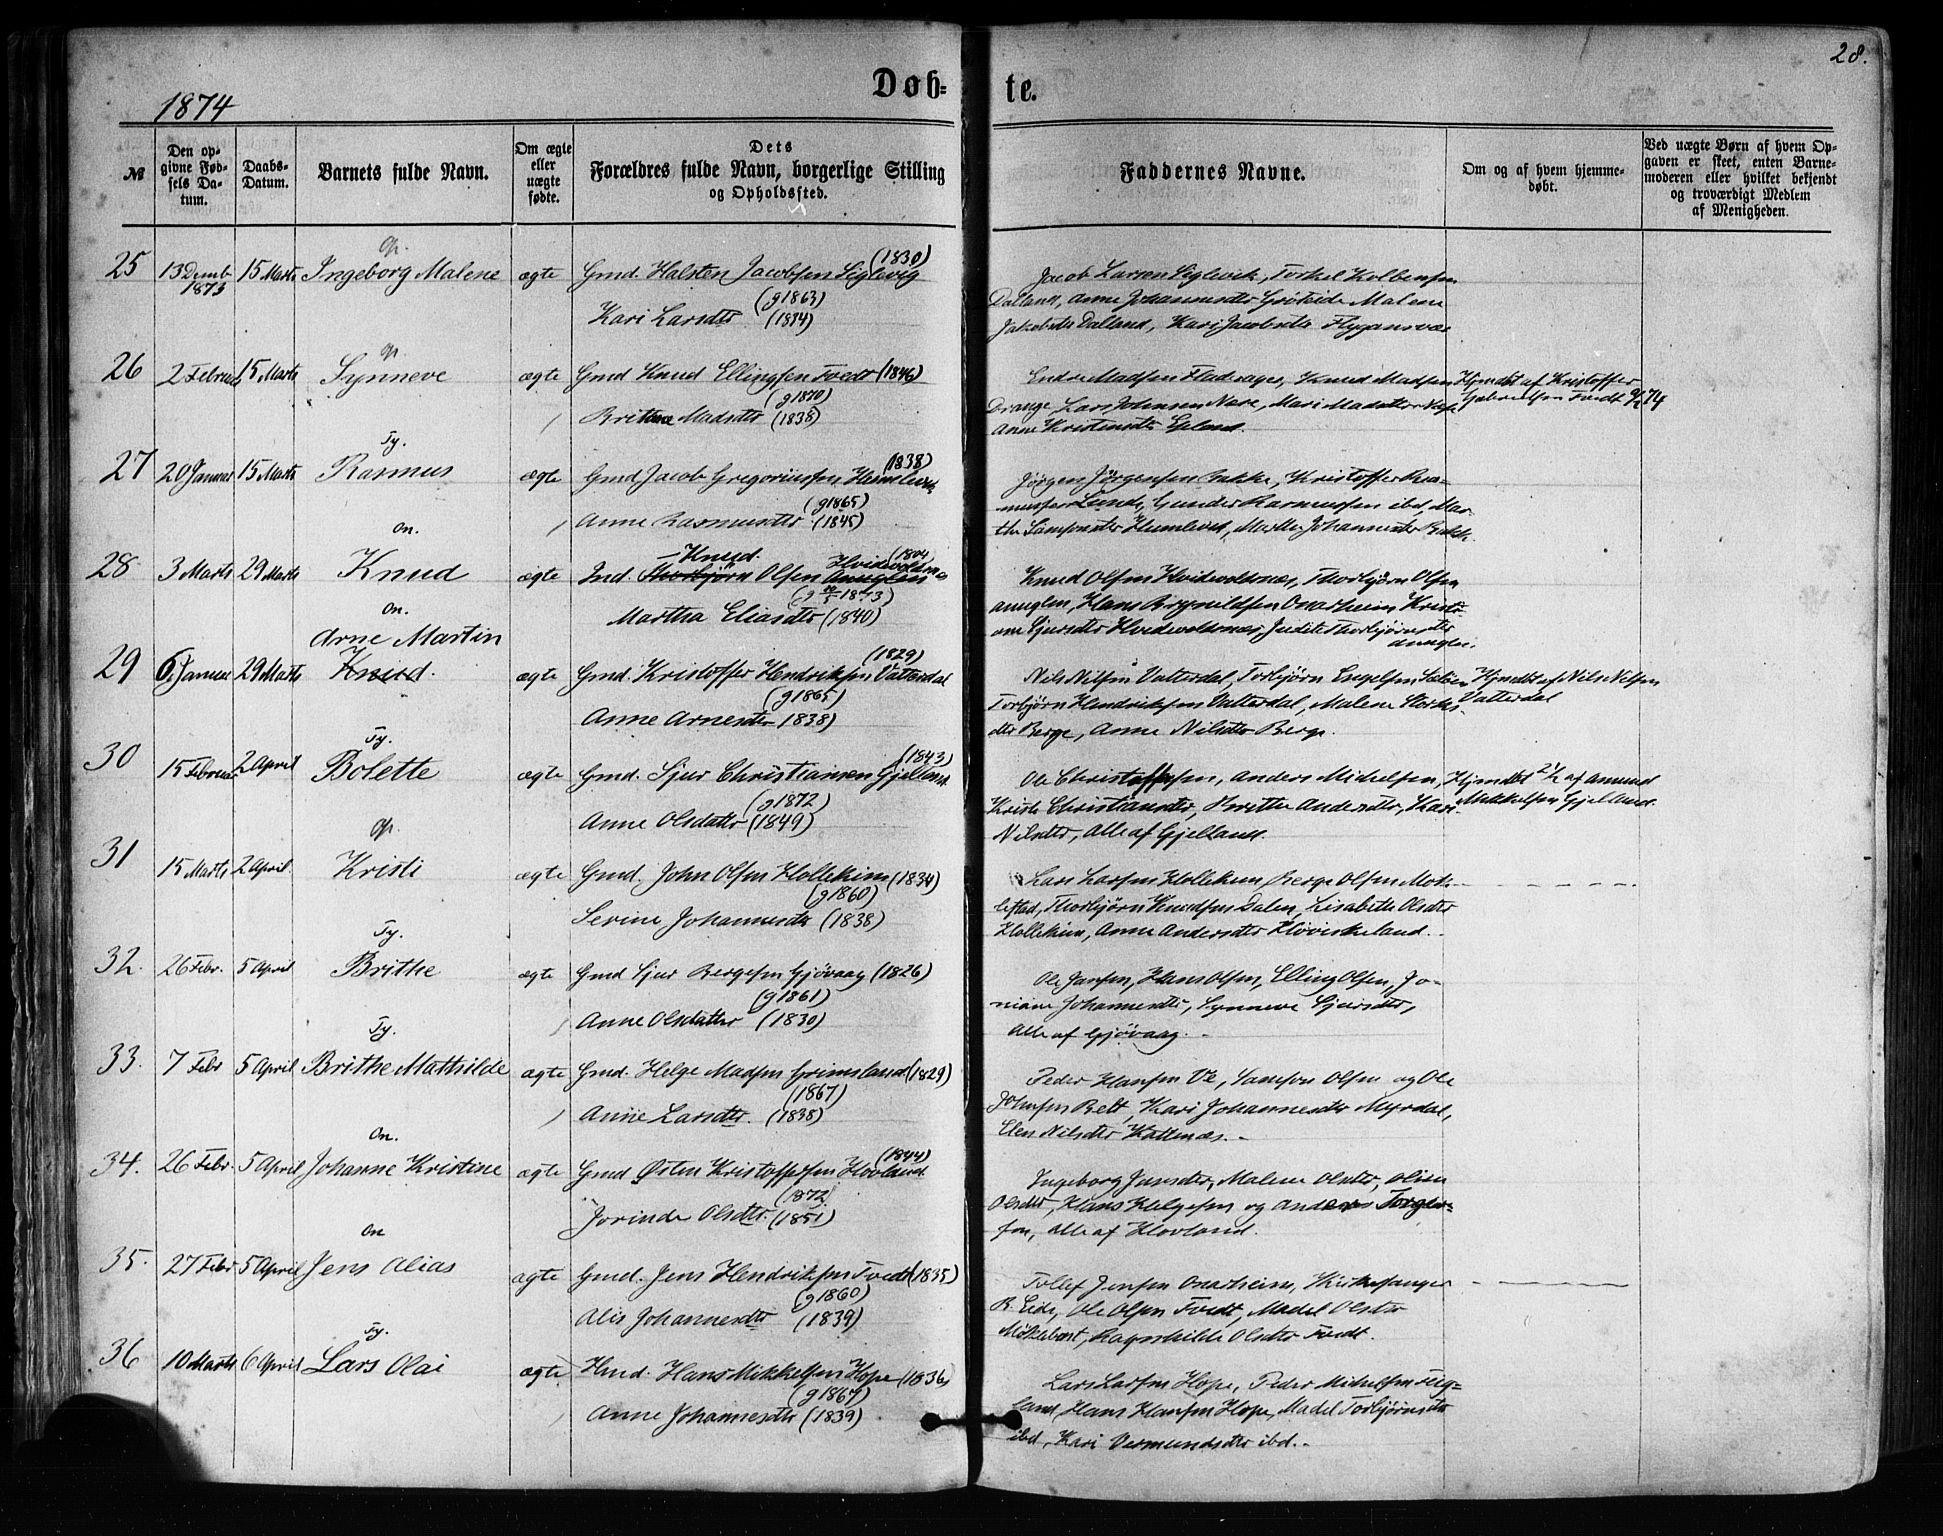 28.
Døb=
te.
1874
№
Den op-
givne Fød-
sels Da-
tum.
Daabs-
Datum.
Barnets fulde Navn.
Om ægte
eller
uægte
fødte.
Dets
Forældres fulde Navn, borgerlige Stilling
og Opholdssted.
Faddernes Navne.
Om og af hvem hjemme-
døbt.
Ved uægte Børn af hvem Op-
gaven er skeet, enten Barne-
moderen eller hvilket bekjendt
og troværdigt Medlem
af Menigheden.
Op.
25 13 Decemb 1873 15 Marts Ingeborg Malene ægte Gmd. Halsten Jacobsen Siglevig (1830)
(g1863)
Kari Larsdtr (1834)
Jacob Larsen Siglevik, Torkel Kolbensen
Dalland, Anne Johannesdtr Malene
Dalland, Kari Jacobsdtr
Op.
26 2 Februar 15 Marts Synneve ægte Gmd Knud Ellingsen Tvedt (1846)
(g1870)
Brithe Madsdtr (1838)
Endre Madsen, Knud Madsen
Drange Lars Johnsen Nære, Mari Madsdtr
Anne Kristensdtr Epland.
Hjmdbt af Kristoffer
Gabrielsen Tvedt 9/2 74
Ty.
27 20 Januar 15 Marts Rasmus ægte Gmd Jacob Gregoriussen (1838)
(g1865)
Anne Rasmusdtr (1845)
Jørgen Jørgensen Bakke, Kristoffer Ras-
mussen Lunde, Gunder Rasmussen ibd, Mar-
the Samsonsdtr, Marthe Johannesdtr Bakke.
On.
28 3 Marts 29 Marts Knud ægte Ind. Thorbjørn Knud Olsen Anuglen Hvidevoldsnes (1804
(g 1873)
Martha Eliasdtr (1840)
Knud Olsen Hvidevoldsnæs, Thorbjørn Olsen
Anuglen, Hans Brynildsen Onarheim, Kristi-
ane Sjursdtr Hvidevoldsnæs, Judite Thorbjørnsdtr
Anuglen.
On.
29 6 Januar 29 Marts Arne Martin Knud. ægte Gmd. Kristoffer Hendriksen Vatterdal (1829)
(g1865)
Anne Arnesdtr 1838)
Nils Nilsen Vatterdal, Torbjørn Engelsen
Torbjørn Hendriksen Vatterdal, Malene
dtr Berge, Anne Nilsdtr Berge.
Hjmdbt af Nils Nilsen
Vatterdal
Ty.
30 15 Februar 2 April Bolette ægte Gmd. Sjur Christiansen Gjelland (1843)
(g1872
Anne Olsdatter (1849)
Ole Christoffersen, Anders Mikkelsen,
Kristi Christiansdtr, Brithe Andersdtr, Kari
Nilsdtr, Alle af Gjelland.
Hjmdbt 21/2 af Amund
Mikkelsen Gjelland.
Op.
31 15 Marts 2 April Kristi ægte Gmd. John Olsen Hollekim (1834)
(g1860)
Serine Johannesdtr (1838)
Lars Larsen Hollekim Berge Olsen
Thorbjørn Knudsen Dalen, Lisabeth Olsdtr
Hollekim, Anne Andersdtr.
Ty.
32. 26 Febr. 5 April Brithe ægte Gmd Sjur Bergesen Gjøvaag (1826)
(g1861)
Anne Olsdatter (1830)
Ole Jansen, Hans Olsen, Elling Olsen, Jo-
niane Johannesdtr, Synneve Sjursdtr,
Alle af Gjøvaag.
Ty.
33. 7 Febr 5 April Brithe Mathilde ægte Gmd. Helge Madsen Grimsland (1829)
(1867)
Anne Larsdtr. (1838)
Peder Hansen Ve, Samson Olsen og Ole
Johnsen Belt, Kari Johannesdtr Myrdal,
Elen Nilsdtr Katlenæs.
On.
34. 26 Febr. 5 April Johanne Kristine ægte Gmd Østen Kristoffersen Hovland (1844)
(1872)
Jorinde Olsdtr. (1851)
Ingeborg Jansdtr, Malene Olsdtr, Oline
Olsdtr, Hans Helgesen og Anders Torger-
sen, alle af Hovland.
On
35. 27 Febr 5 April Jens Alias ægte Gmd. Jens Hendriksen Tvedt (1835)
(g1860)
Alis Johannesdtr (1839)
Tollef Jensen Onarheim, Kirkesanger
B. Eide, Ole Olsen Tvedt, Madel Olsdtr
Møklebust, Ragnhilde Olsdtr Tvedt.
Ty.
36 10 Marts 6 April Lars Olai ægte Hmd. Hans Mikkelsen Hope (1836)
(g1867)
Anne Johannesdtr (1839)
Lars Larsen Hope, Peder Mikkelsen
land, Hans Hansen Hope, Madel Torbjørnsdtr
ibd, Kari Vermundsdtr ibd.